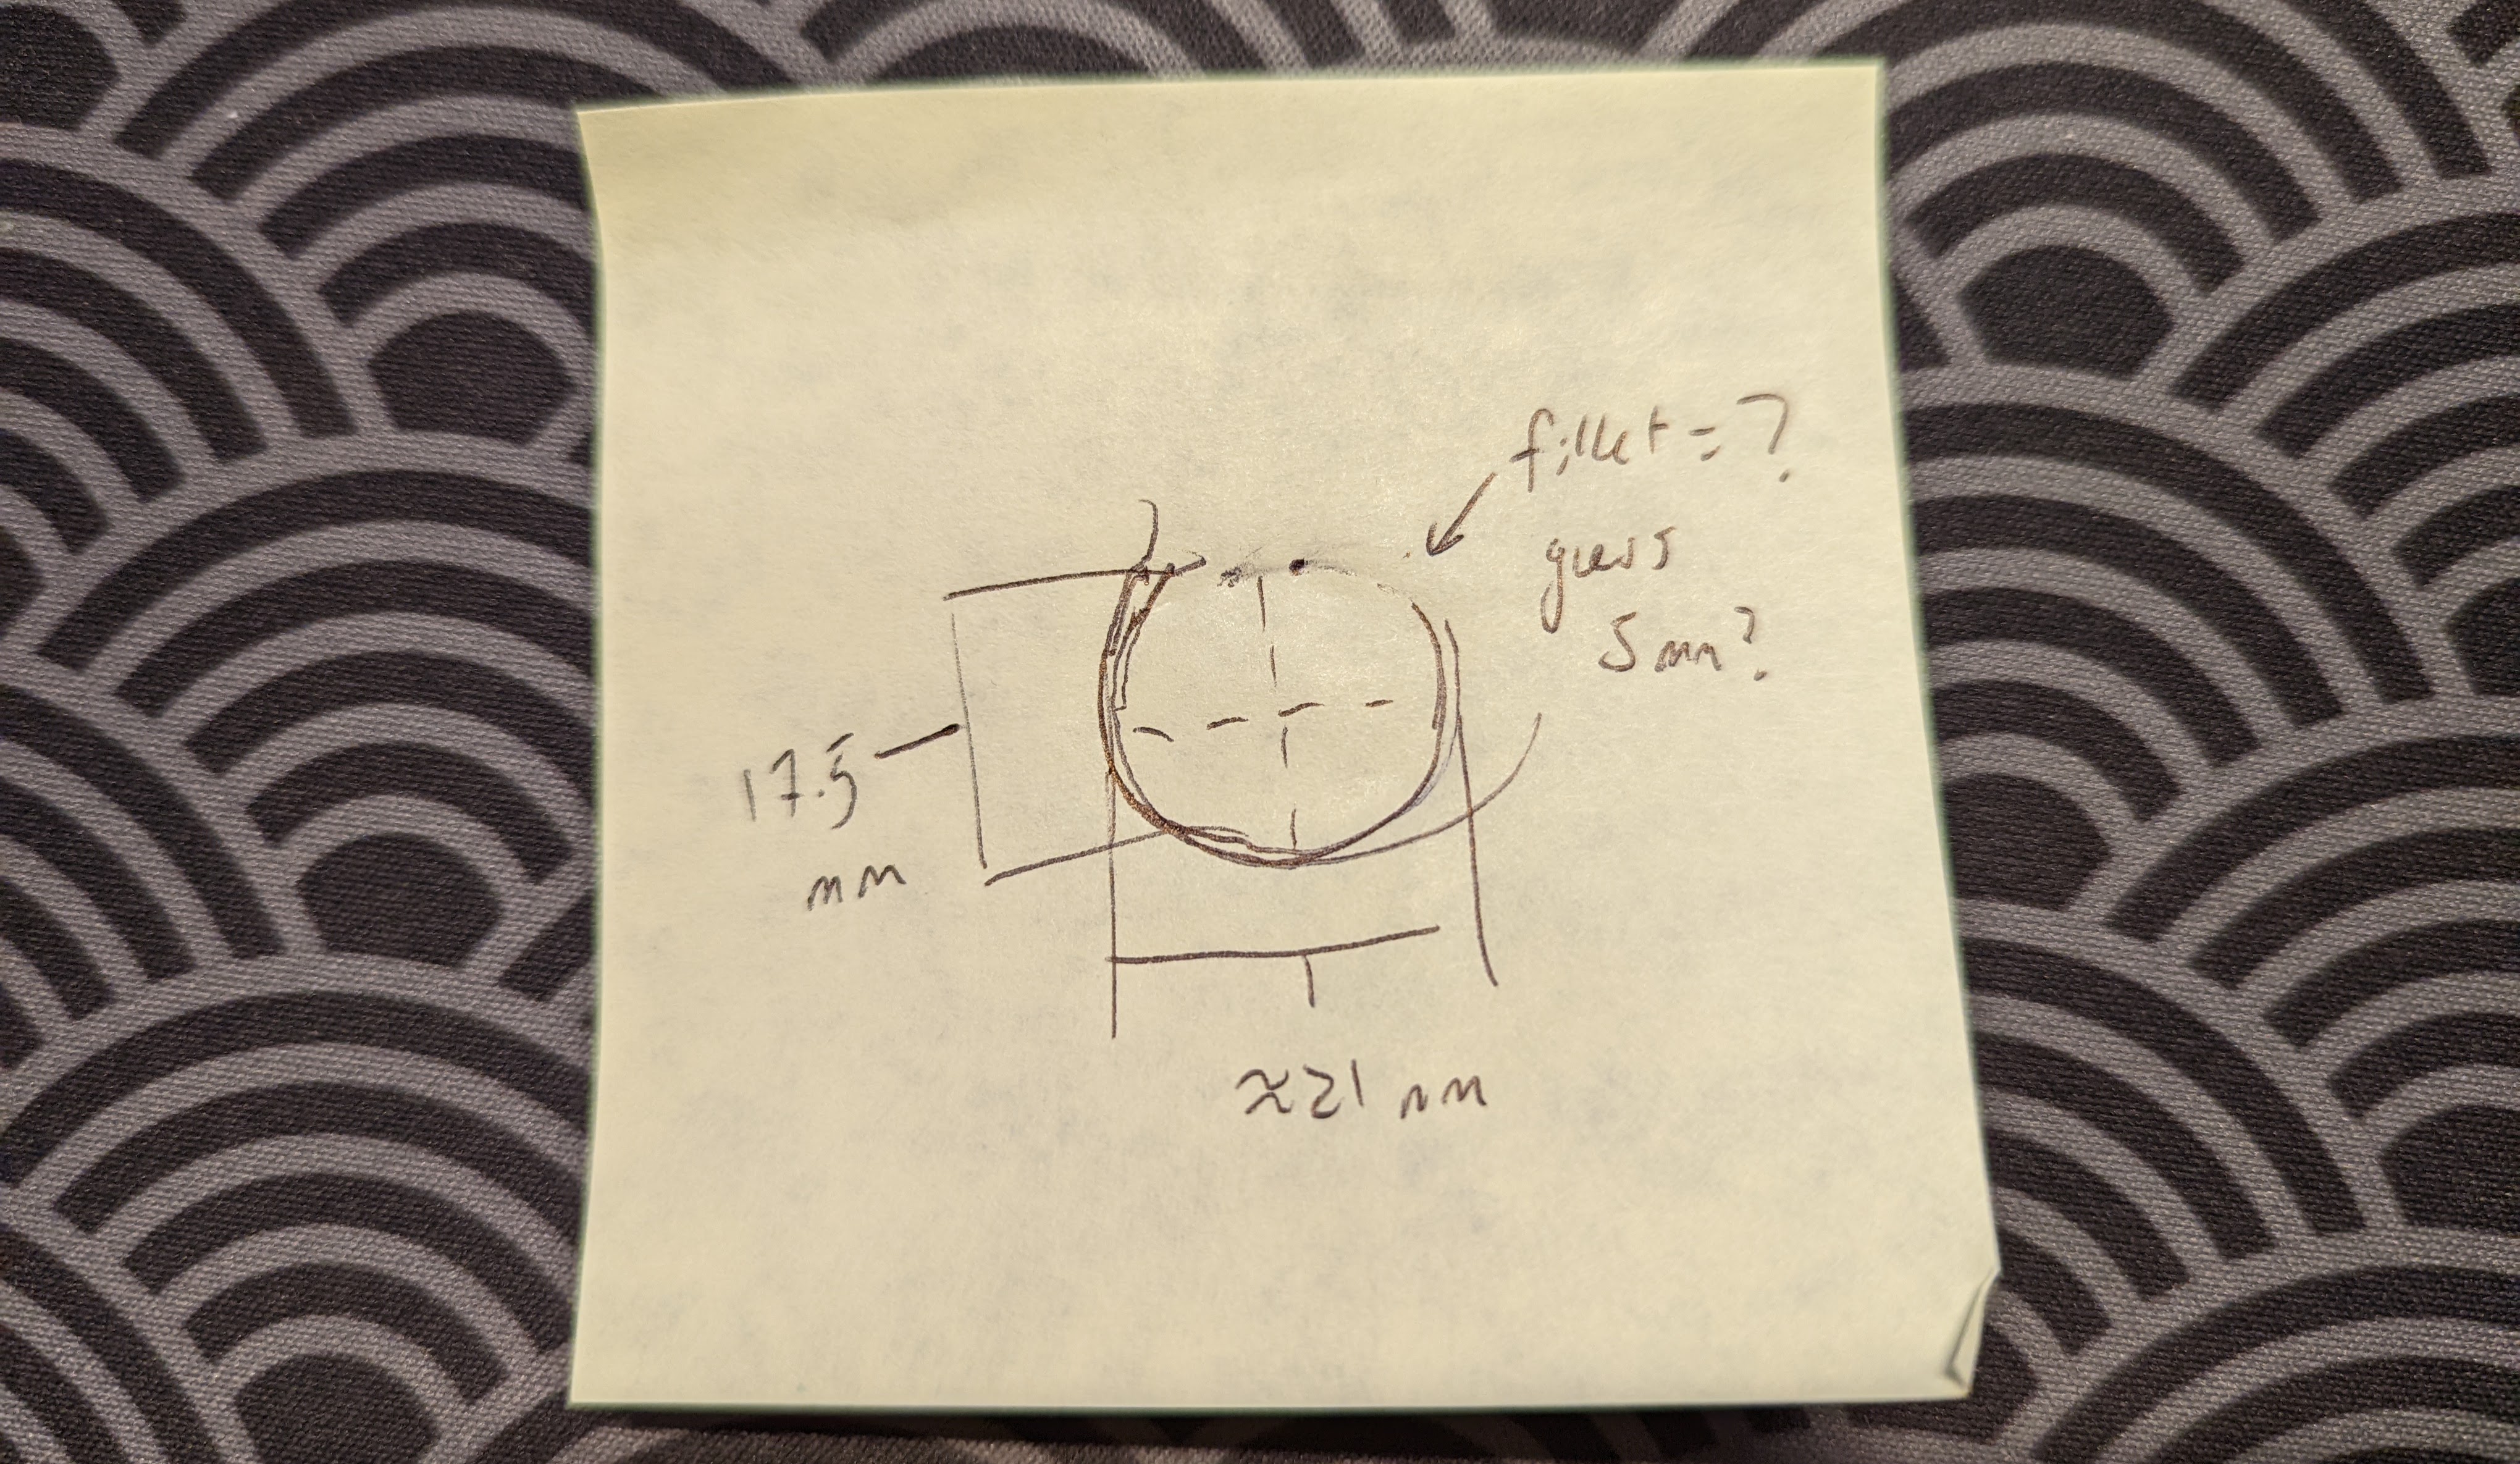 fillet = ?
guess
5 mm?
17.5
mm
≈21 mm